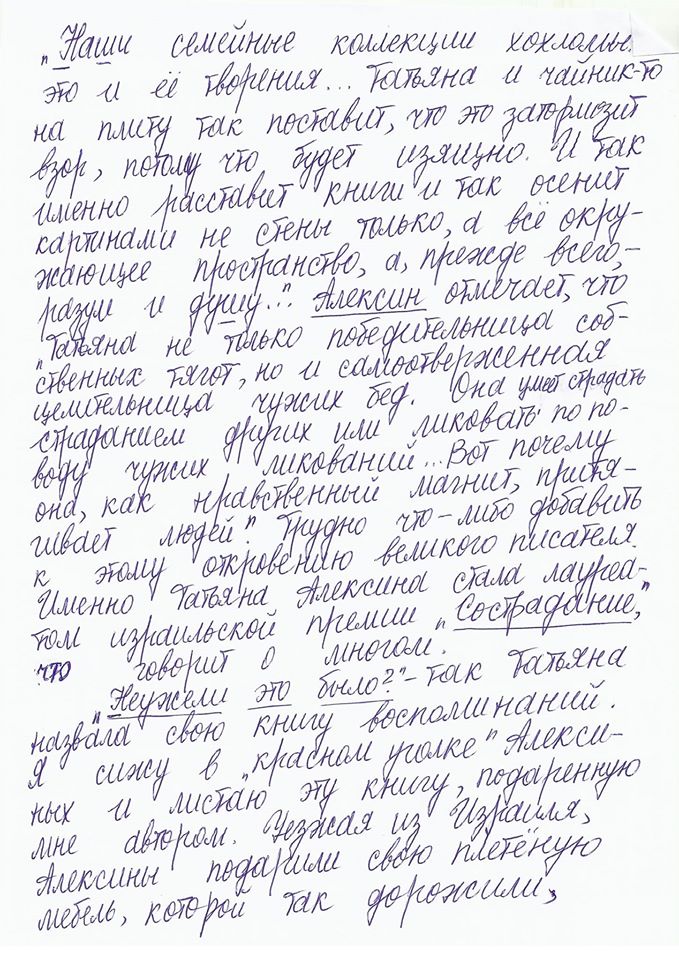 „Наши семейные коллекции хохломы.
это и её творения... Татьяна и чайник-то
на плиту так поставит, что это затормозит
взор, потому что будет изящно. И так
именно расставит книги и так осенит
картинами не стены только, а всё окру-
жающее пространство, а, прежде всего, -
разум и душу.." Алексин отмечает, что
„Татьяна не только победительница соб-
ственных тягот, но и самоотверженная
целительница чужих бед. Она умеет страдать
страданием других или ликовать по по-
воду чужих ликований... Вот почему
она, как нравственный магнит, притя-
гивает людей". Трудно что-либо добавить
к этому откровению великого писателя.
Именно Татьяна Алексина стала лауреа-
том израильской премии „Сострадание",
что говорит о многом.
„Неужели это было?" - так Татьяна
назвала свою книгу воспоминаний.
Я сижу в „красном уголке" Алекси-
ных и листаю эту книгу, подаренную
мне автором. Уезжая из Израиля,
Алексины подарили свою плетёную
мебель, которой так дорожили,